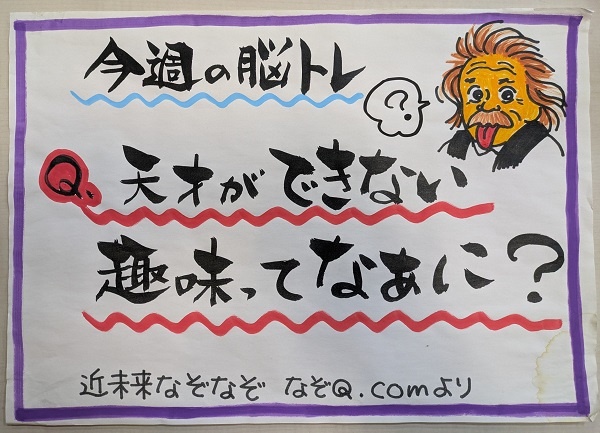 今週の脳トレ
?
Q.天才ができない
趣味ってなぁに?
近未来なぞなぞ なぞQ.comより